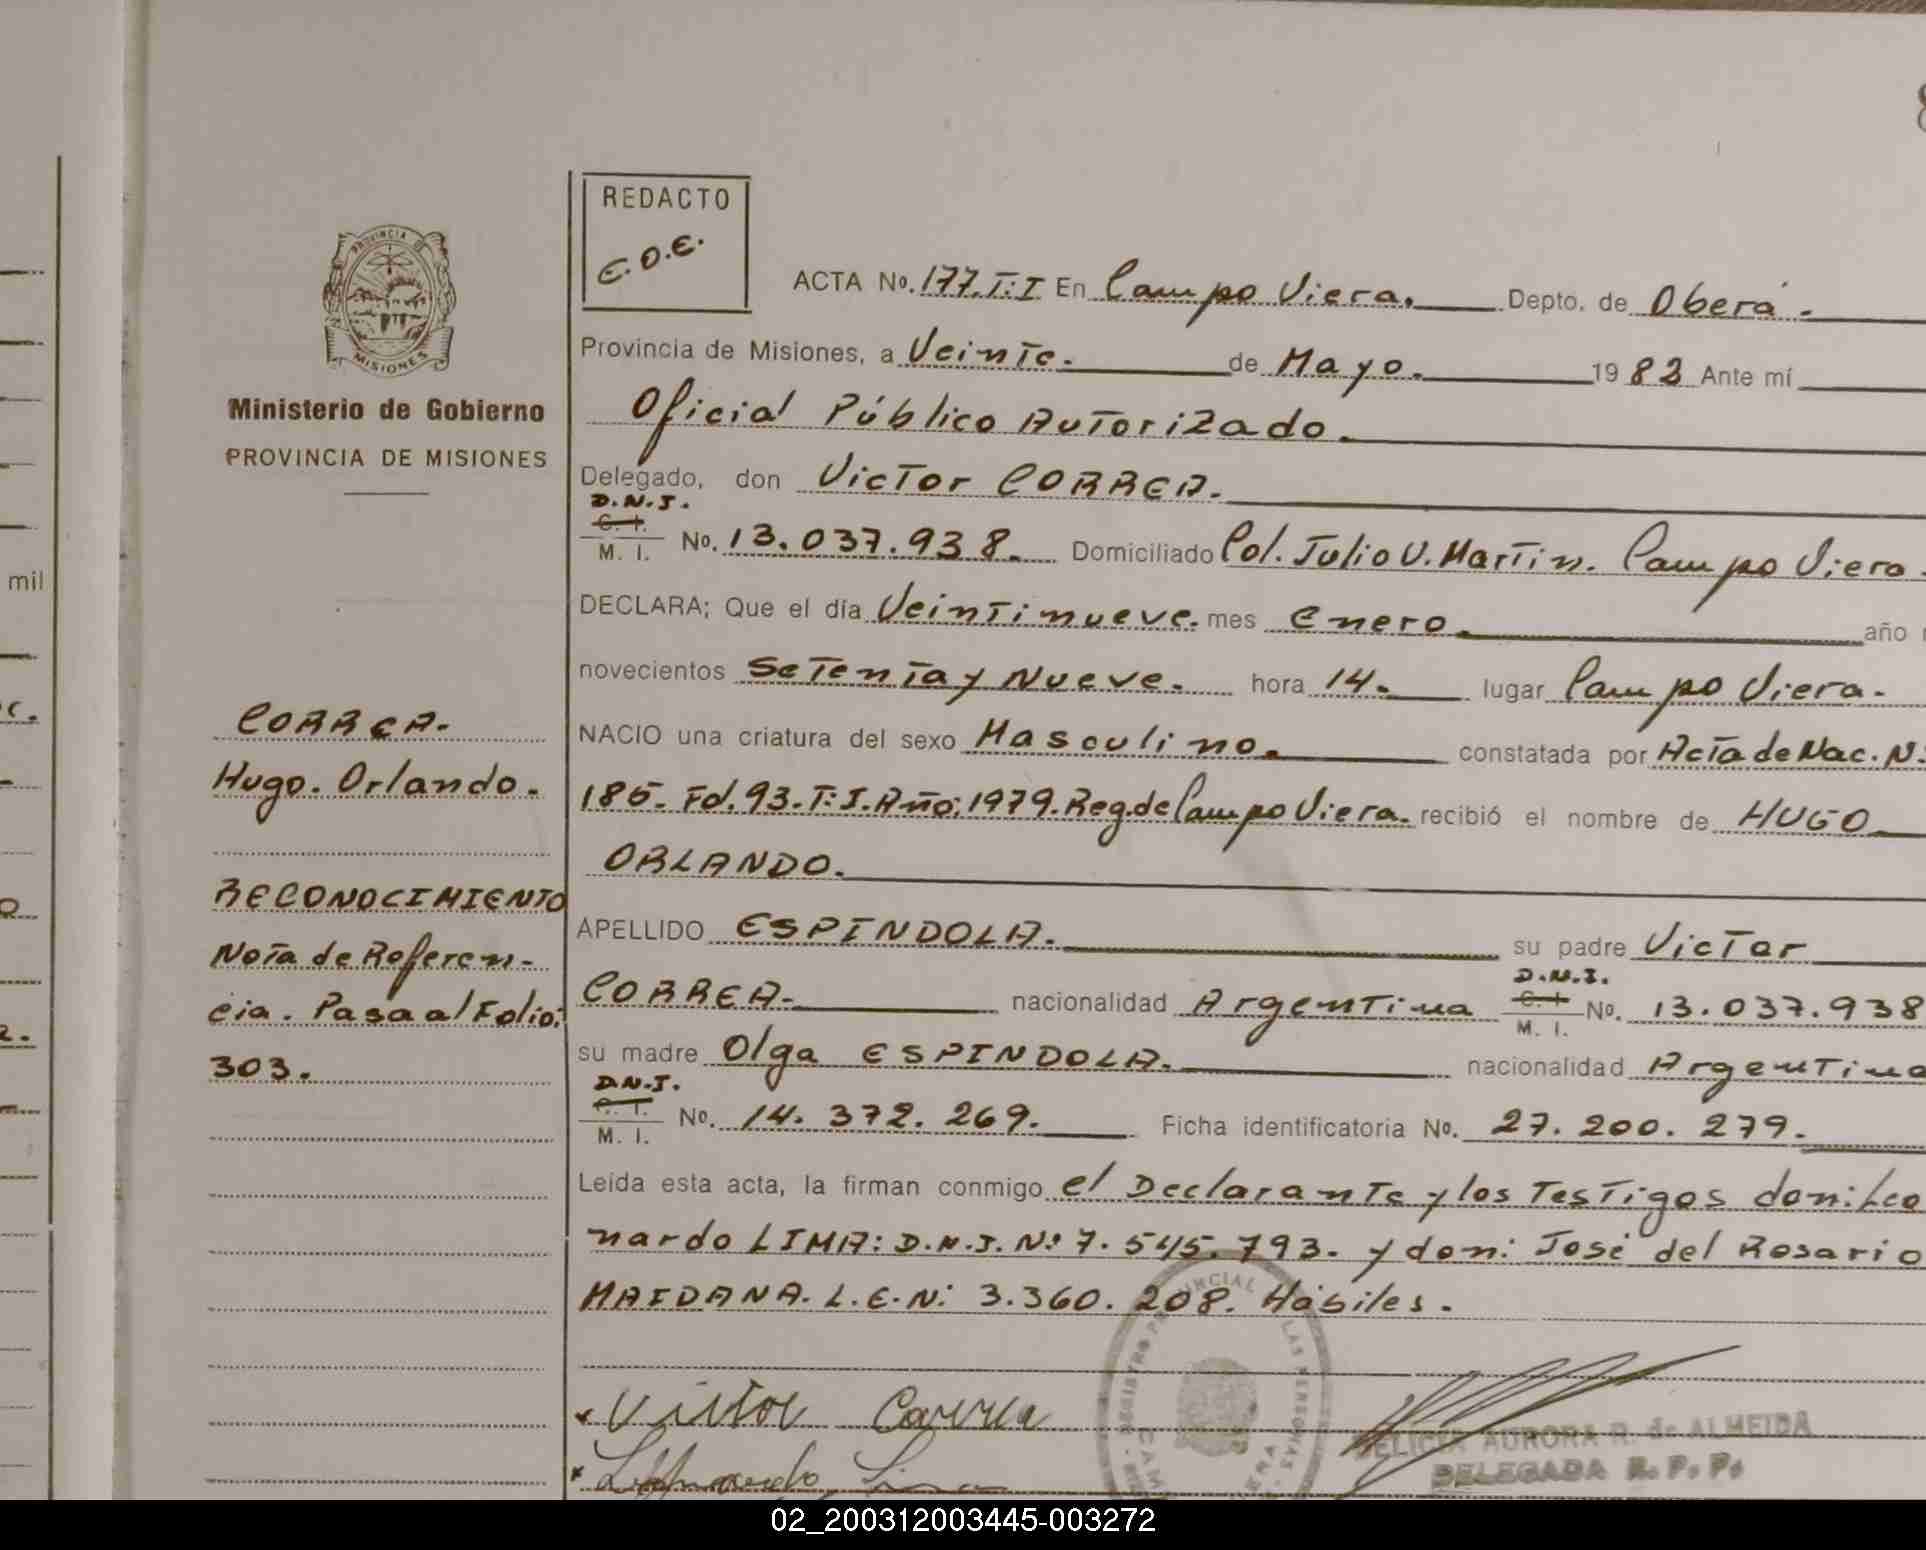 8
REDACTO
E.D.E.
PROVINCIA DE
MISIONES
ACTA No. 177.T:I En Campo Viera. Depto. de Oberá.
Provincia de Misiones, a Veinte. de Mayo. 1983 Ante mí
Ministerio de Gobierno
PROVINCIA DE MISIONES
Oficial Público Autorizado.
Delegado, don Victor CORREA.
D.N.I.
C. I.
M. I. No. 13.037.938. Domiciliado Col. Julio U. Martin. Campo Viera.
mil
DECLARA; Que el día Veintinueve. mes Enero. año
novecientos Setenta y Nueve. hora 14. lugar Campo Viera.
CORREA.
Hugo. Orlando.
NACIO una criatura del sexo Masculino. constatada por Acta de Nac. N:
185. Fd. 93. T:I. Año; 1979. Reg. de Campo Viera. recibió el nombre de HUGO
ORLANDO.
RECONOCIMIENTO
Nota de Referen-
cia. Pasa al Folio:
303.
APELLIDO ESPINDOLA. su padre Victor
D.N.I.
CORREA. nacionalidad Argentina C. I. M. I. No. 13.037.938
su madre Olga ESPINDOLA. nacionalidad Argentina
D.N.I.
C. I.
M. I. No. 14.372.269. Ficha identificatoria No. 27.200.279.
Leída esta acta, la firman conmigo el Declarante y los Testigos don: Leo
nardo LIMA: D.N.I. N: 7.545.793. y don: José del Rosario
MAIDANA. L.E.N: 3.360.208. Hábiles.
Victor Correa
FELICIA AURORA R. de ALMEIDA
DELEGADA R. P. P.
02_200312003445-003272